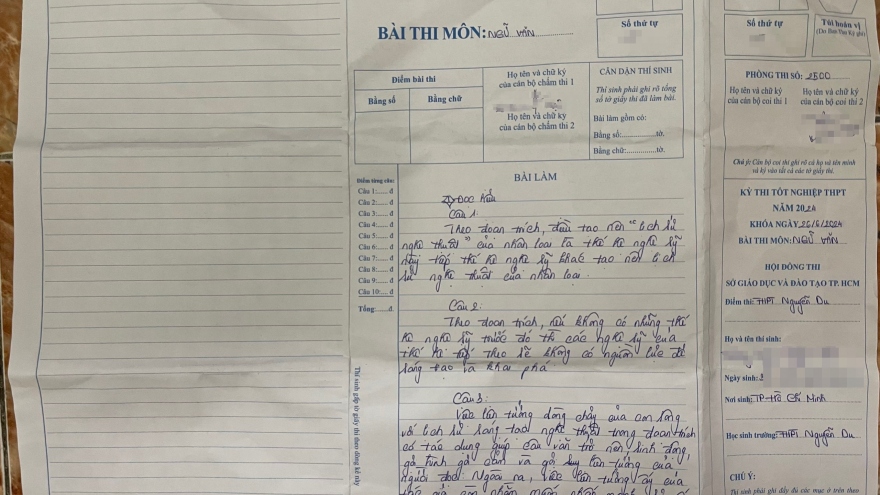 BÀI THI MÔN: NGỮ VĂN
Số thứ tự
Số thứ tự
Túi hoán vị
Điểm bài thi
Bằng số
Bằng chữ
Họ tên và chữ ký
của cán bộ chấm thi 1
Họ tên và chữ ký
của cán bộ chấm thi 2
CĂN DẶN THÍ SINH
Thí sinh phải ghi rõ tổng
số tờ giấy thi đã làm bài.
Bài làm gồm có:
Bằng số:..............tờ.
Bằng chữ:..............tờ.
PHÒNG THI SỐ: 2500
Họ tên và chữ ký
của cán bộ coi thi 1
Họ tên và chữ ký
của cán bộ coi thi 2
Chú ý: Cán bộ coi thi ghi rõ cả họ và tên mình
và ký vào tất cả các tờ giấy thi.
KỲ THI TỐT NGHIỆP THPT
NĂM 2024
KHÓA NGÀY 26/6/2024
BÀI THI MÔN: NGỮ VĂN
HỘI ĐỒNG THI
SỞ GIÁO DỤC VÀ ĐÀO TẠO TP. HCM
Điểm thi: THPT Nguyễn Du
Họ và tên thí sinh:
Ngày sinh:
Nơi sinh: TP Hồ Chí Minh
Học sinh trường: THPT Nguyễn Du
CHÚ Ý:
Thí sinh phải ghi đầy đủ các mục ở trên theo
Điểm từng câu:
Câu 1:......đ
Câu 2:......đ
Câu 3:......đ
Câu 4:......đ
Câu 5:......đ
Câu 6:......đ
Câu 7:......đ
Câu 8:......đ
Câu 9:......đ
Câu 10:....đ
Tổng:......đ
Thí sinh gấp tờ giấy thi theo dòng kẻ này
BÀI LÀM
I) ĐỌC hiểu
Câu 1:
Theo đoạn trích, điều tạo nên "lịch sử
nghệ thuật" của nhân loại là thế hệ nghệ sỹ
này tiếp thế hệ nghệ sỹ khác tạo nên lịch
sử nghệ thuật của nhân loại.
Câu 2:
Theo đoạn trích, nếu không có những thế
hệ nghệ sỹ trước đó thì các nghệ sỹ của
thế hệ tiếp theo sẽ không có nguồn lực để
sáng tạo và khai phá.
Câu 3:
Việc liên tưởng dòng chảy của con sông
với lịch sử sáng tạo nghệ thuật trong đoạn trích
có tác dụng giúp câu văn trở nên sinh động,
gợi hình gợi cảm và gợi suy liên tưởng của
người đọc. Ngoài ra, việc liên tưởng ấy của
tác giả còn nhằm nhấn mạnh